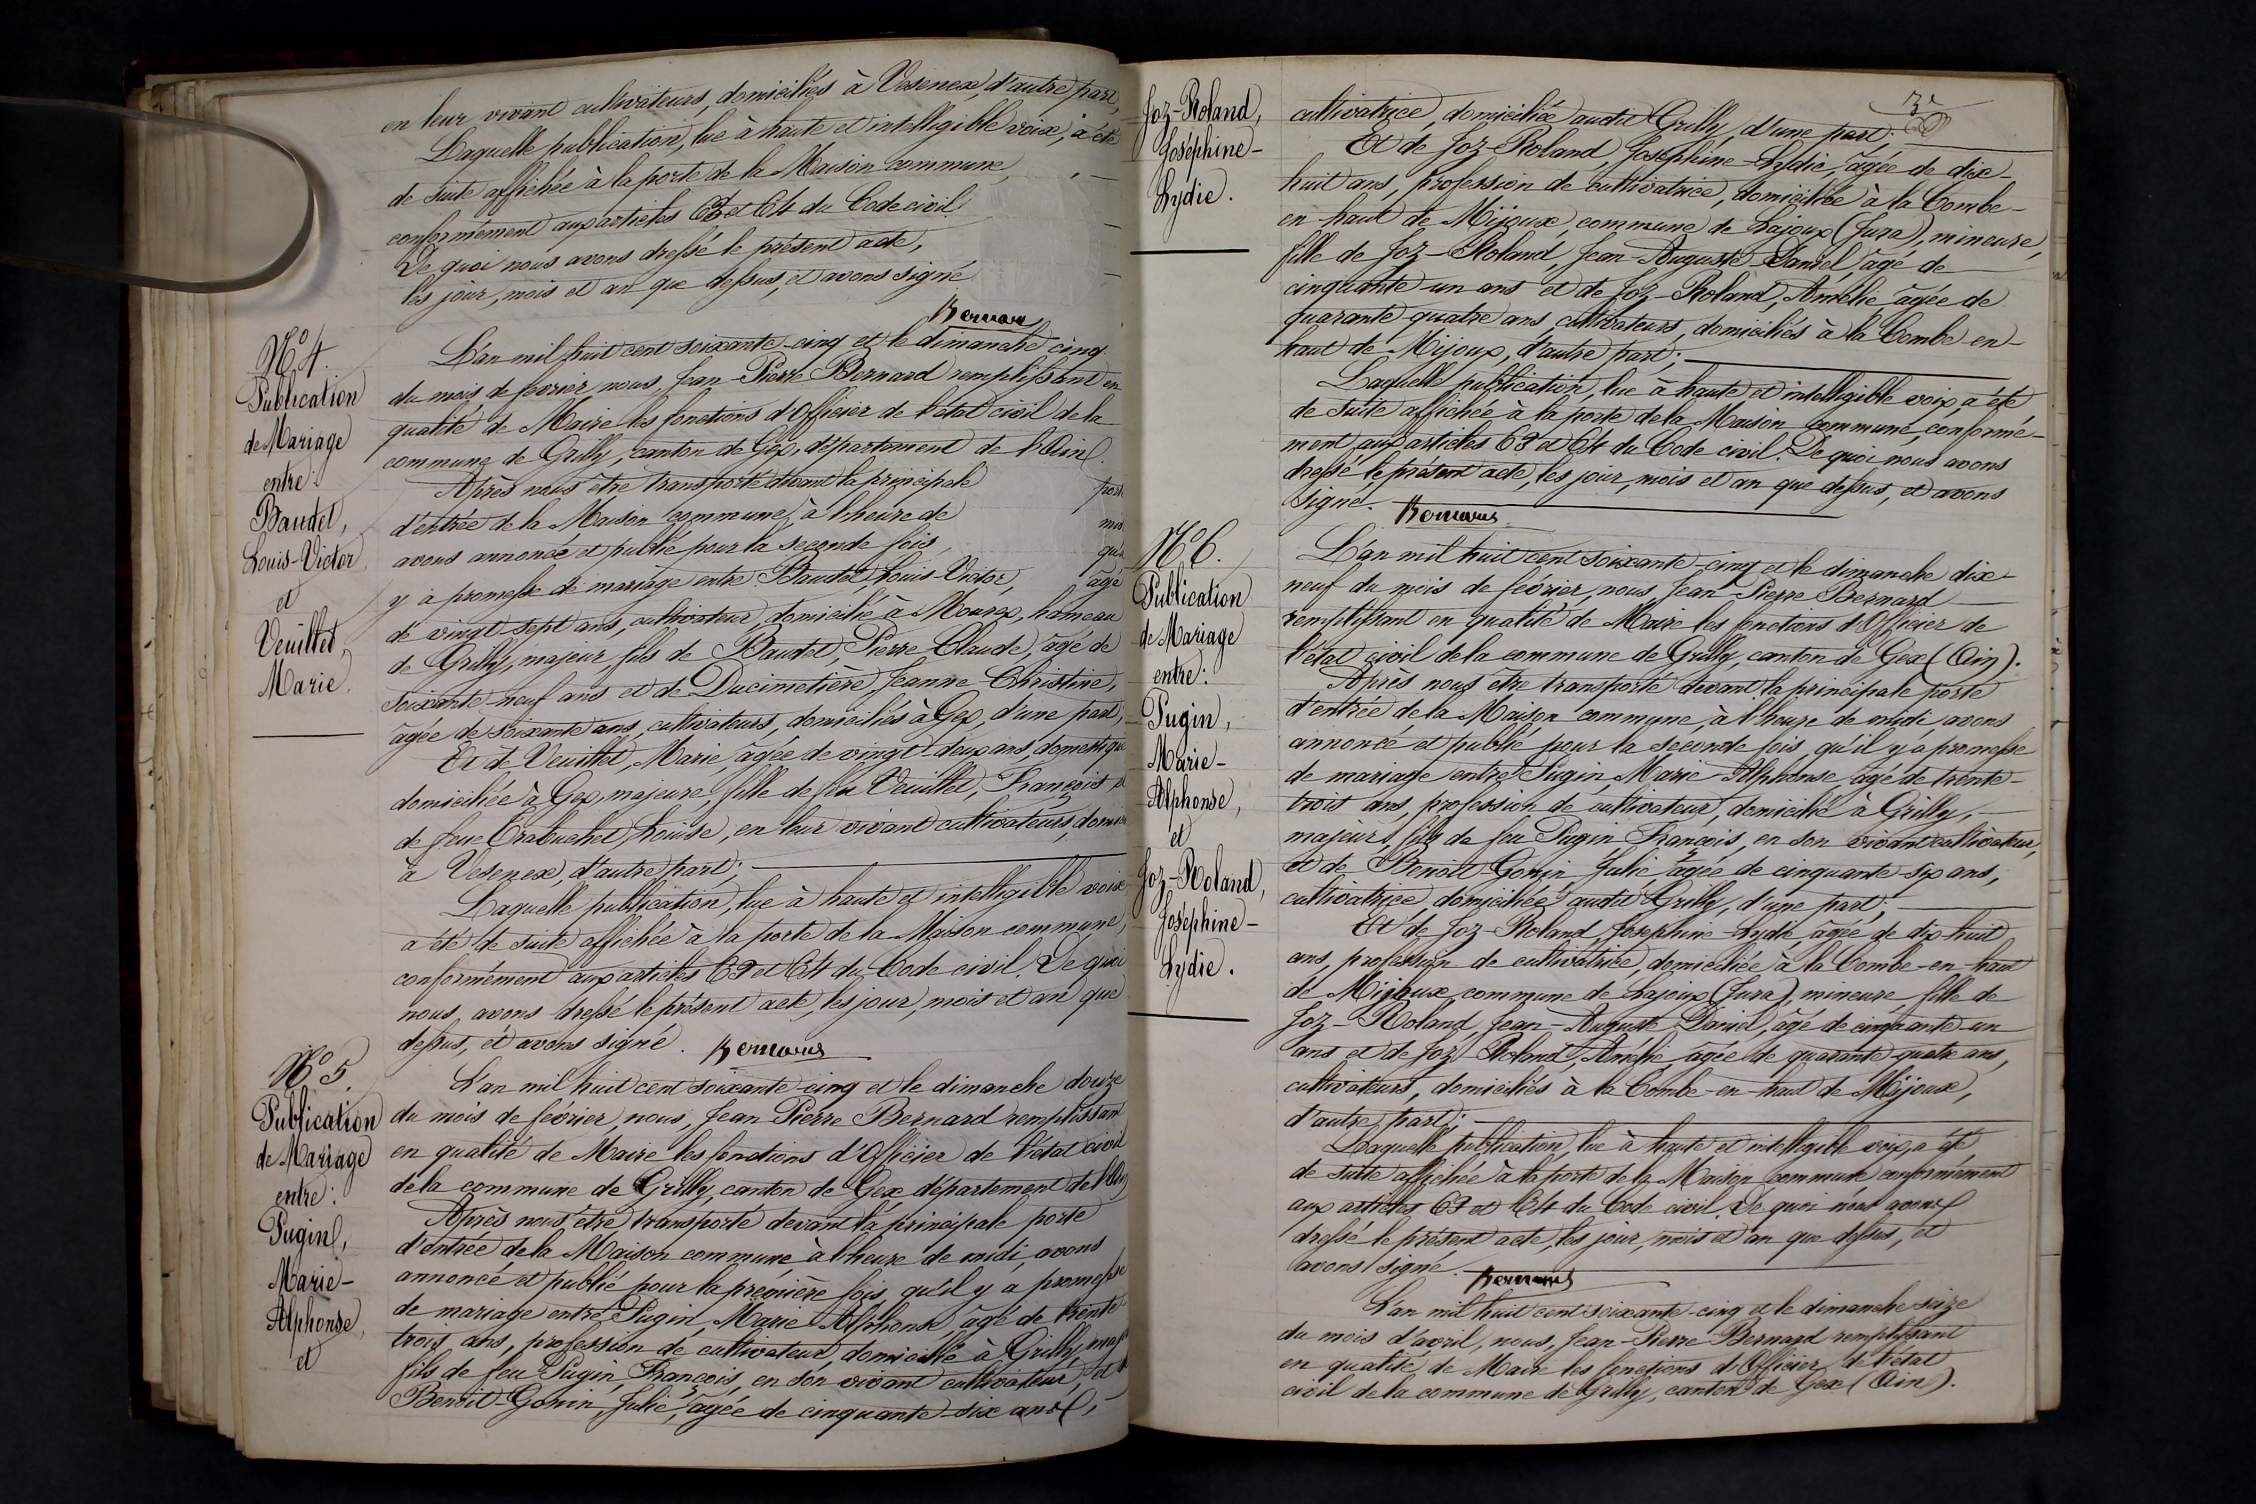 en leur vivant cultivateurs, domiciliés à Vesenex, d'autre part,
Laquelle publication, lue à haute et intelligible voix, a été
de suite affichée à la porte de la Maison commune,
conformément aux articles 63 et 64 du Code civil
De quoi nous avons dressé le présent acte,
les jour, mois et an que dessus, et avons signé
Bernard
N° 4.
Publication
de Mariage
entre:
Baudet,
Louis-Victor,
et
Veuillet,
Marie.
L'an mil huit cent soixante-cinq et le dimanche cinq
du mois de février, nous, Jean-Pierre Bernard remplissant en
qualité de Maire les fonctions d'Officier de l'état civil de la
commune de Grilly, canton de Gex, département de l'Ain.
Après nous être transporté devant la principale port
d'entrée de la Maison commune, à l'heure de mi
avons annoncé et publié pour la seconde fois, qu'il
y a promesse de mariage entre Baudet, Louis-Victor, âgé
de vingt-sept ans, cultivateur, domicilié à Mourex, hameau
de Grilly, majeur, fils de Baudet, Pierre Claude, âgé de
soixante-neuf ans et de Ducimetière Jeanne Christine,
âgée de soixante ans, cultivateurs, domiciliés à Gex, d'une part;
Et de Veuillet, Marie, âgée de vingt-deux ans, domestique
domiciliée à Gex, majeure, fille de feu Veuillet, François et
de feue Crabuchet, Louise, en leur vivant cultivateurs, domici
à Vesenex, d'autre part;
Laquelle publication, lue à haute et intelligible voix
a été de suite affichée à la porte de la Maison commune,
conformément aux articles 63 et 64 du Code civil. De quoi
nous avons dressé le présent acte, les jour, mois et an que
dessus, et avons signé. Bernard
N° 5.
Publication
de Mariage
entre:
Pugin,
Marie-
Alphonse,
et
L'an mil huit cent soixante-cinq et le dimanche douze
du mois de février, nous, Jean-Pierre Bernard remplissant
en qualité de Maire les fonctions d'Officier de l'état civil
de la commune de Grilly, canton de Gex département de l'Ain
Après nous être transporté devant la principale porte
d'entrée de la Maison commune à l'heure de midi, avons
annoncé et publié pour la première fois, qu'il y a promesse
de mariage entre Pugin, Marie-Alphonse, âgé de trente-
trois ans, profession de cultivateur, domicilié à Grilly, maj
fils de feu Pugin, François, en son vivant cultivateur, et de
Benoit-Gonin, Julie, âgée de cinquante-six ans,
3e
Joz-Roland,
Joséphine-
Lydie.
cultivatrice, domiciliée audit Grilly, d'une part;
Et de Joz-Roland, Joséphine-Lydie, âgée de dix-
huit ans, profession de cultivatrice, domiciliée à la Combe-
en-haut de Mijoux, commune de Lajoux (Jura), mineure,
fille de Joz-Roland, Jean-Auguste-Daniel, âgé de
cinquante-un ans et de Joz-Roland, Amélie âgée de
quarante-quatre ans, cultivateurs, domiciliés à la Combe-en-
haut de Mijoux, d'autre part;
Laquelle publication, lue à haute et intelligible voix, a été
de suite affichée à la porte de la Maison commune, conformé-
ment aux articles 63 et 64 du Code civil. De quoi nous avons
dressé le présent acte, les jour, mois et an que dessus, et avons
signé. Bernard
N° 6.
Publication
de Mariage
entre:
Pugin,
Marie-
Alphonse,
et
Joz-Roland,
Joséphine-
Lydie.
L'an mil huit cent soixante-cinq et le dimanche dix-
neuf du mois de février, nous, Jean-Pierre Bernard
remplissant en qualité de Maire les fonctions d'Officier de
l'état civil de la commune de Grilly, canton de Gex (Ain).
Après nous être transporté devant la principale porte
d'entrée de la Maison commune, à l'heure de midi, avons
annoncé et publié pour la seconde fois, qu'il y a promesse
de mariage entre Pugin, Marie-Alphonse, âgé de trente-
trois ans, profession de cultivateur, domicilié à Grilly,
majeur, fils de feu Pugin, François, en son vivant cultivateur,
et de Benoit-Gonin Julie âgée de cinquante-six ans,
cultivatrice, domiciliée audit Grilly, d'une part;
Et de Joz-Roland, Joséphine-Lydie, âgée de dix-huit
ans, profession de cultivatrice, domiciliée à la Combe-en-haut
de Mijoux commune de Lajoux (Jura), mineure fille de
Joz-Roland, Jean-Auguste Daniel, âgé de cinquante-un
ans et de Joz-Roland, Amélie âgée de quarante-quatre ans,
cultivateurs, domiciliés à la Combe-en-haut de Mijoux,
d'autre part;
Laquelle publication, lue à haute et intelligible voix, a été
de suite affichée à la porte de la Maison commune conformément
aux articles 63 et 64 du Code civil. De quoi nous avons
dressé le présent acte, les jour, mois et an que dessus, et
avons signé. Bernard
L'an mil huit cent soixante-cinq et le dimanche seize
du mois d'avril, nous, Jean-Pierre Bernard remplissant
en qualité de Maire les fonctions d'Officier de l'état
civil de la commune de Grilly, canton de Gex (Ain).